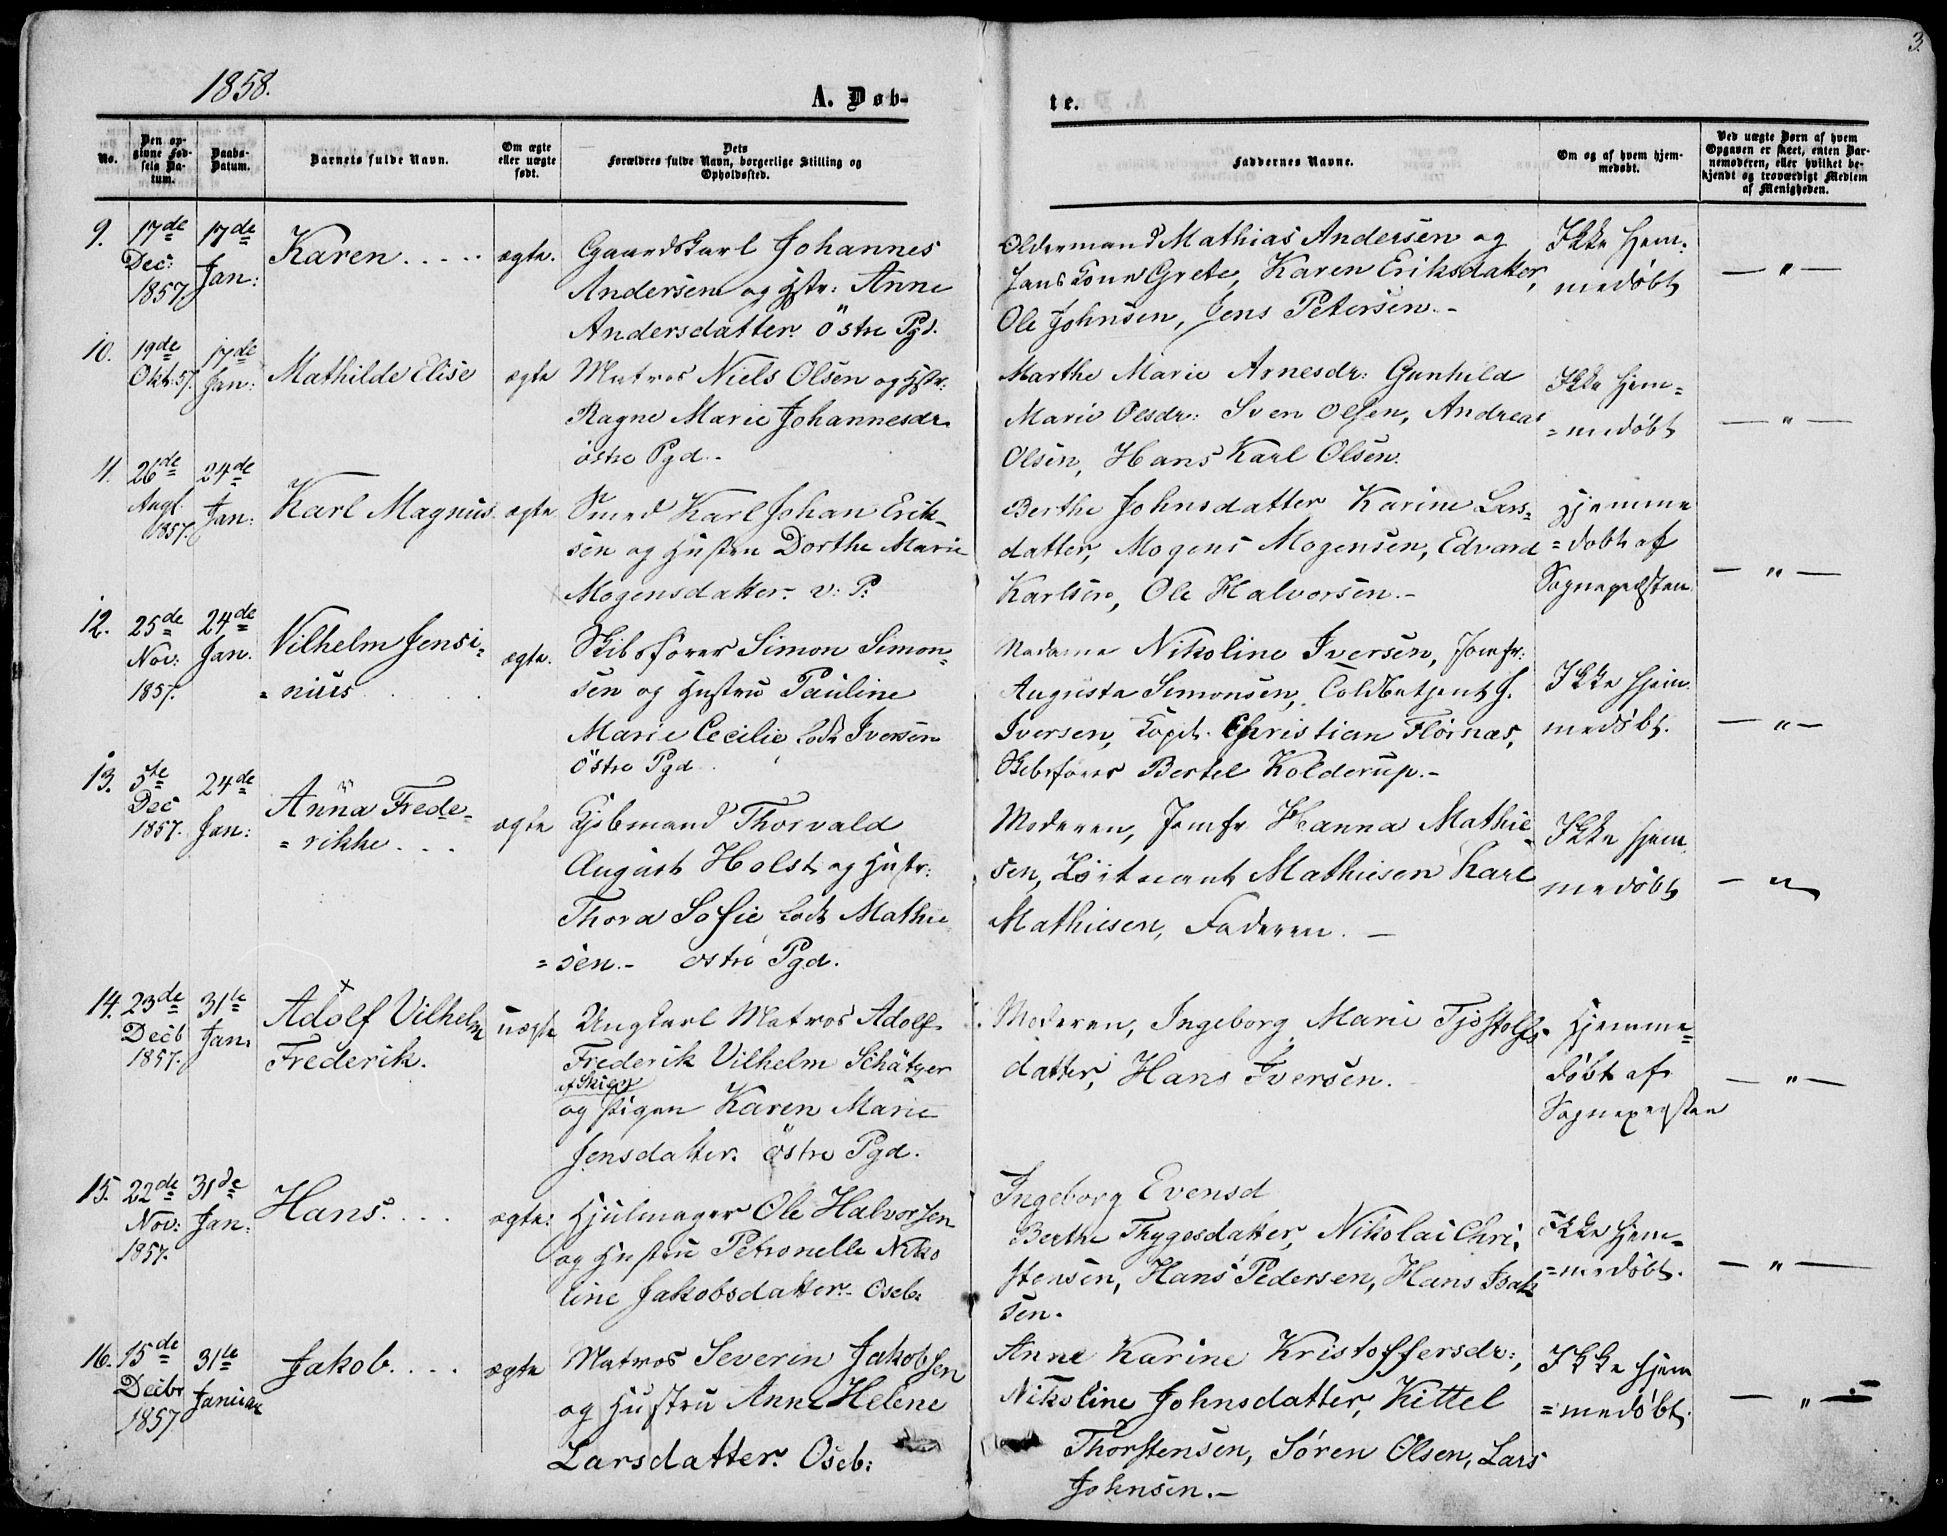 3.
1858.
A. Døb-
te.
No.
Den op-
givne Fød-
sels Da-
tum.
Daabs-
Datum.
Barnets fulde Navn.
Om ægte
eller uægte
født.
Dets
Forældres fulde Navn, borgerlige Stilling og
Opholdssted.
Faddernes Navne.
Om og af hvem hjem-
medøbt.
Ved uægte Børn af hvem
Opgaven er skeet, enten Bar-
nemoderen, eller hvilket be-
kjendt og troværdigt Medlem
af Menigheden.
9.
17de
Dec:
1857
17de
Jan:
Karen
ægte.
Gaardskarl Johannes
Andersen og Hstr: Anne
Andersdatter. östre Pgd.
Oldermand Mathias Andersen og
Hans Kone Grete, Karen Eriksdatter,
Ole Johnsen, Jens Petersen.-
Ikke hjem-
medøbt
— " —
10.
19de
Okt:57.
17de
Jan:
Mathilde Elise
ægte
Matros Niels Olsen og Hstr:
Ragne Marie Johannesdr.
östre Pgd.-
Marthe Marie Arnesdr: Gunhild
Marie Olsdr: Sven Olsen, Andreas
Olsen, Hans Karl Olsen.
Ikke hjem=
=medøbt
— " —
11.
26de
Augt.
1857.
24de
Jan:
Karl Magnus
ægte
Smed Karl Johan Erik-
sen og Hustru Dorthe Marie
Mogensdatter.- v: P:
Berthe Johnsdatter Karine Lars-
datter, Mogens Mogensen, Edvard
Karlsen, Ole Halvorsen.-
Hjemme
=døbt af
Sognepræsten
— " —
12.
25de
Nov:
1857.
24de
Jan.
Vilhelm Jensi=
=nius
ægte.
Skibsfører Simon Simon=
sen og Hustru Pauline
Marie Cecilie, født Iversen
östre Pgd.
Madame Nikoline Iversen, Jomfr:
Augusta Simonsen, Toldbetjent J.
Iversen, Capt. Christian Flörnæs,
Skibsfører Bertel Kolderup.-
Ikke hjem
medøbt.
— " —
13.
5te
Dec
1857.
24de
Jan:
Anna Frede-
=rikke
ægte
Kjøbmand Thorvald
August Holst og Hustr:
Thora Sofie, født Mathie
=sen.- østre Pgd.
Moderen, Jomfr Hanna Mathie
sen, Löitnant Mathiesen Karl
Mathiesen, Faderen. —
Ikke hjem
medøbt
— "
14.
23de
Decb
1857.
31te
Jan.
Adolf Vilhelm
Frederik.
uægte
Ungkarl Matros Adolf
Frederik Vilhelm Schätzer
af Skien
og Pigen Karen Marie
Jensdatter. östre Pgd.
Moderen, Ingeborg Marie Tjostolfs-
datter, Hans Iversen.
Hjemme=
døbt af
Sognepræsten
— " —
15.
22de
Nov:
1857.
31de
Jan:
Hans.
ægte:
Hjulmager Ole Halvorsen
og Hustru Petronelle Niko
line Jakobsdatter.- Oseb:
Ingeborg Evensd
Berthe Thygesdatter, Nikolai Chri,
stensen, Hans Pedersen, Hans Isak
sen.
Ikke hjem=
=medøbt.
— " —
16.
15de
Decbr
1857
31te
Januar
Jakob.
ægte
Matros Severin Jakobsen
og Hustru Anne Helene
Larsdatter. Oseb:
Anne Karine Kristoffersdr:,
Nikoline Johnsdatter, Kittel
Thorstensen, Sören Olsen, Lars
Johnsen.-
Ikke hjem
=medøbt.
— " —